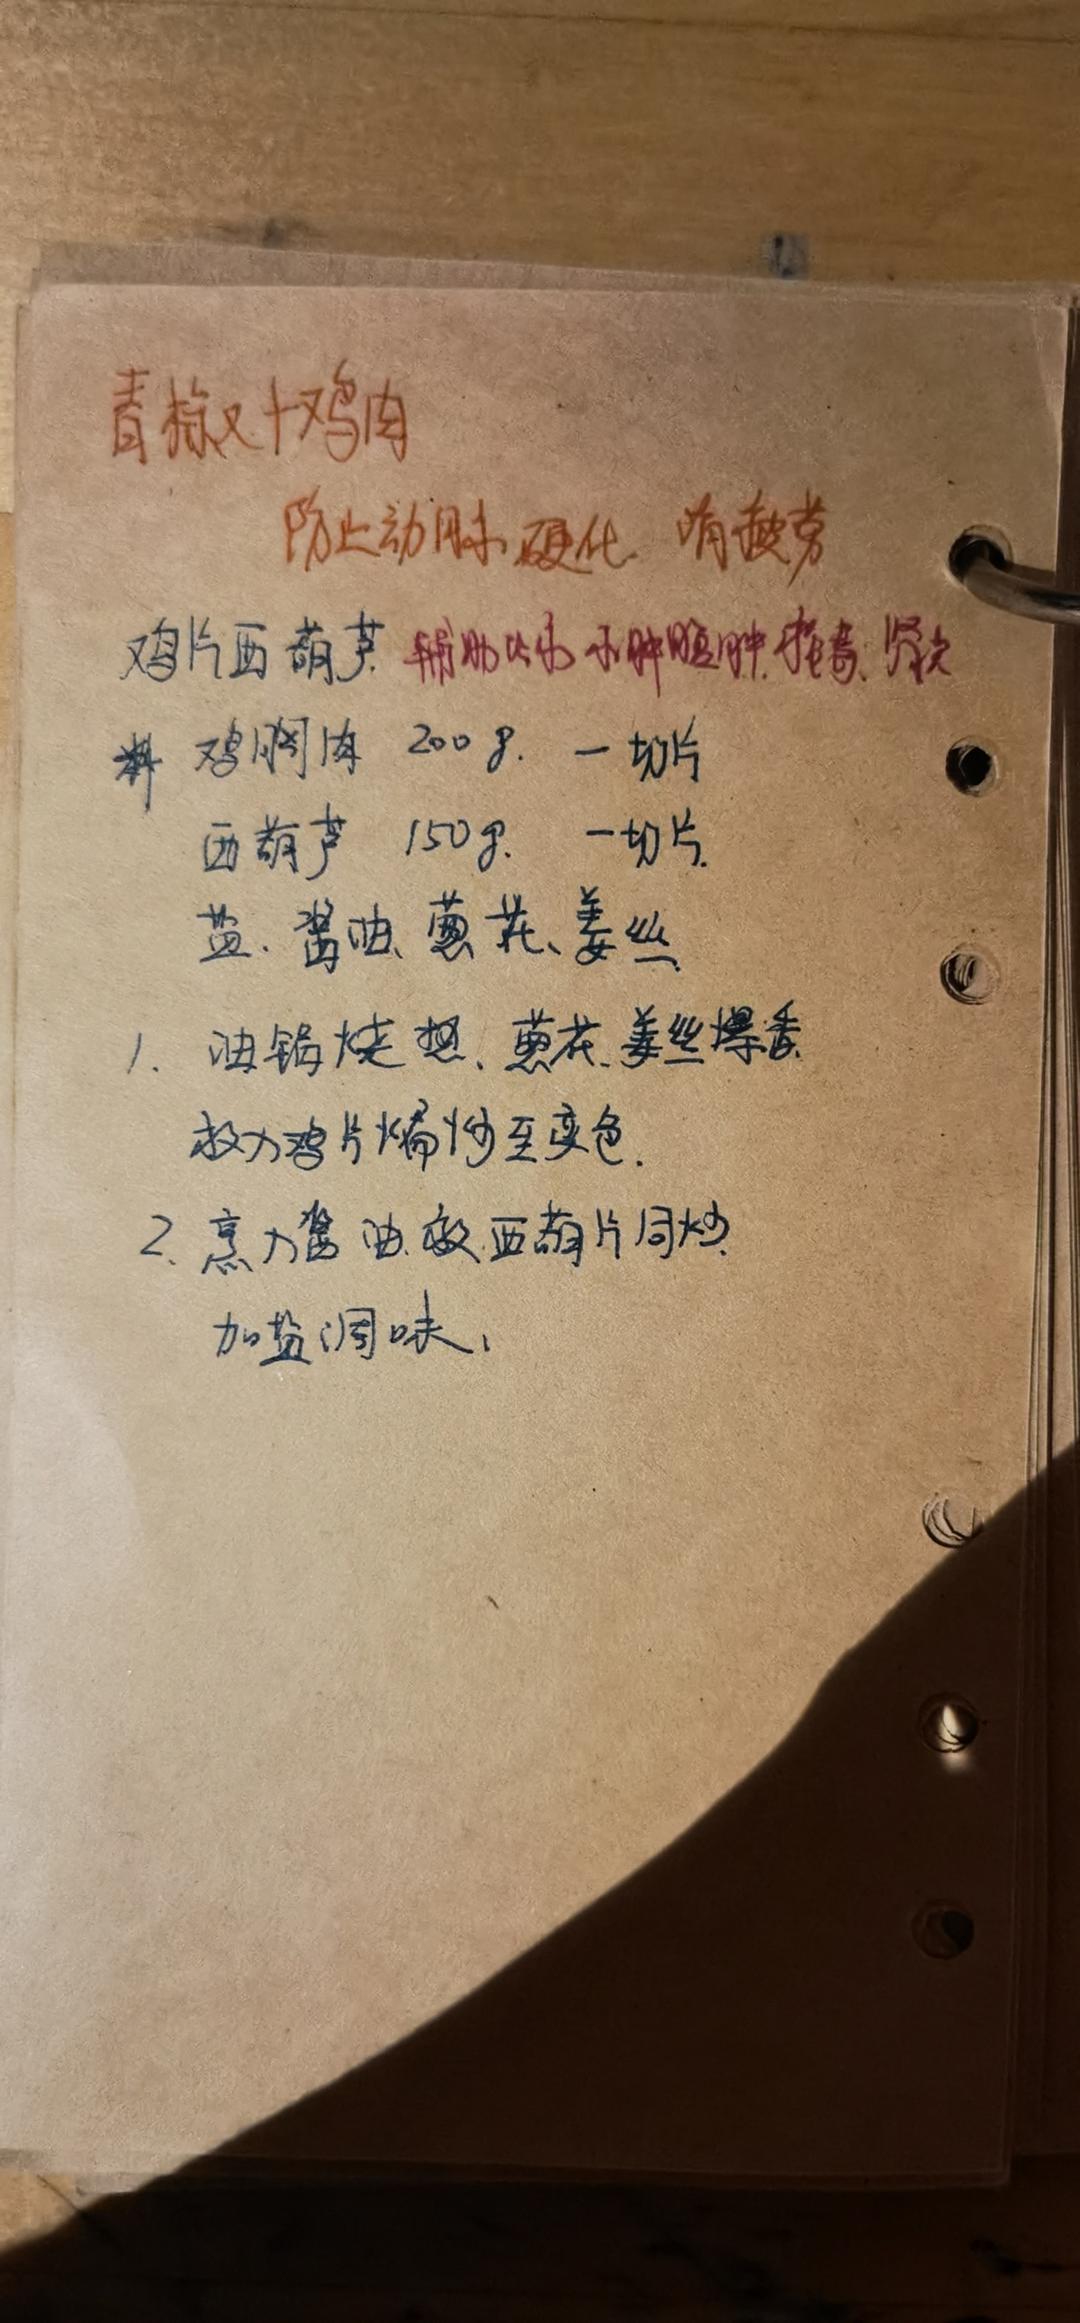 青椒+鸡肉
防止动脉硬化 消疲劳
鸡片西葫芦 辅助治疗 水肿腹胀
料 鸡胸肉 200g. 一切片
西葫芦 150g. 一切片.
盐、酱油、葱花、姜丝.
1. 油锅烧热、葱花、姜丝爆香
放入鸡片煸炒至变色.
2. 烹入酱油、放西葫片同炒.
加盐调味.